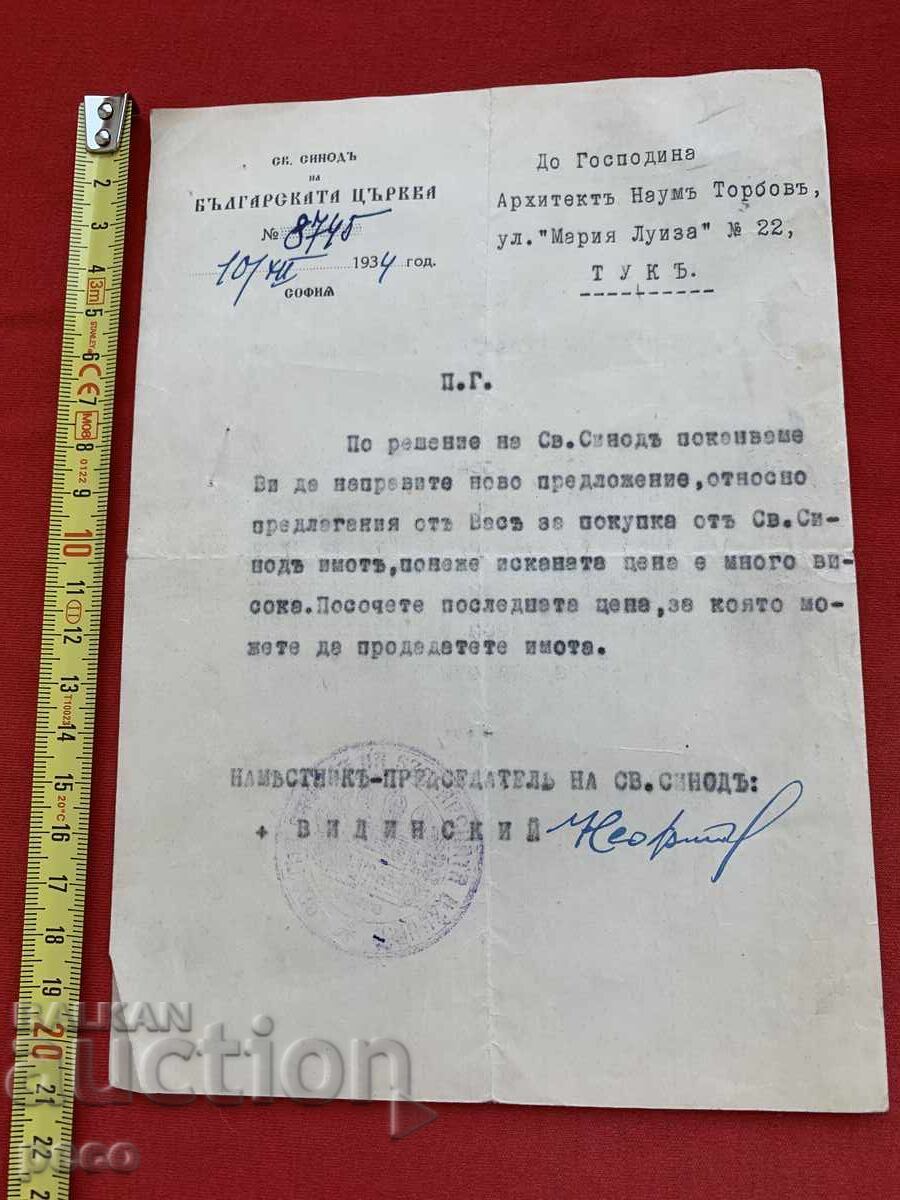 СВ. СИНОДЪ
на
БЪЛГАРСКАТА ЦЪРКВА
№ 8745
10/XII 1934 год.
СОФИЯ
До Господина
Архитектъ Наумъ Торбовъ,
ул. "Мария Луиза" № 22,
ТУКЪ.
П.Г.
По решение на Св.Синодъ поканваме
Ви да направите ново предложение,относно
предлагания отъ Васъ за покупка отъ Св.Си-
нодъ имотъ,понеже исканата цена е много ви-
сока.Посочете последната цена,за която мо-
жете да продадатете имота.
НАМѢСТНИКЪ-ПРЕДСЕДАТЕЛЬ НА СВ.СИНОДЪ:
+ ВИДИНСКИЙ Неофитъ
BALKAN
auction
peco
2
3
4
3m
5
STANLEY
6
CE
7
M08
8
0122
9
10
11
12
13
T10023
14
15
20°C
16
17
18
19
20
21
22